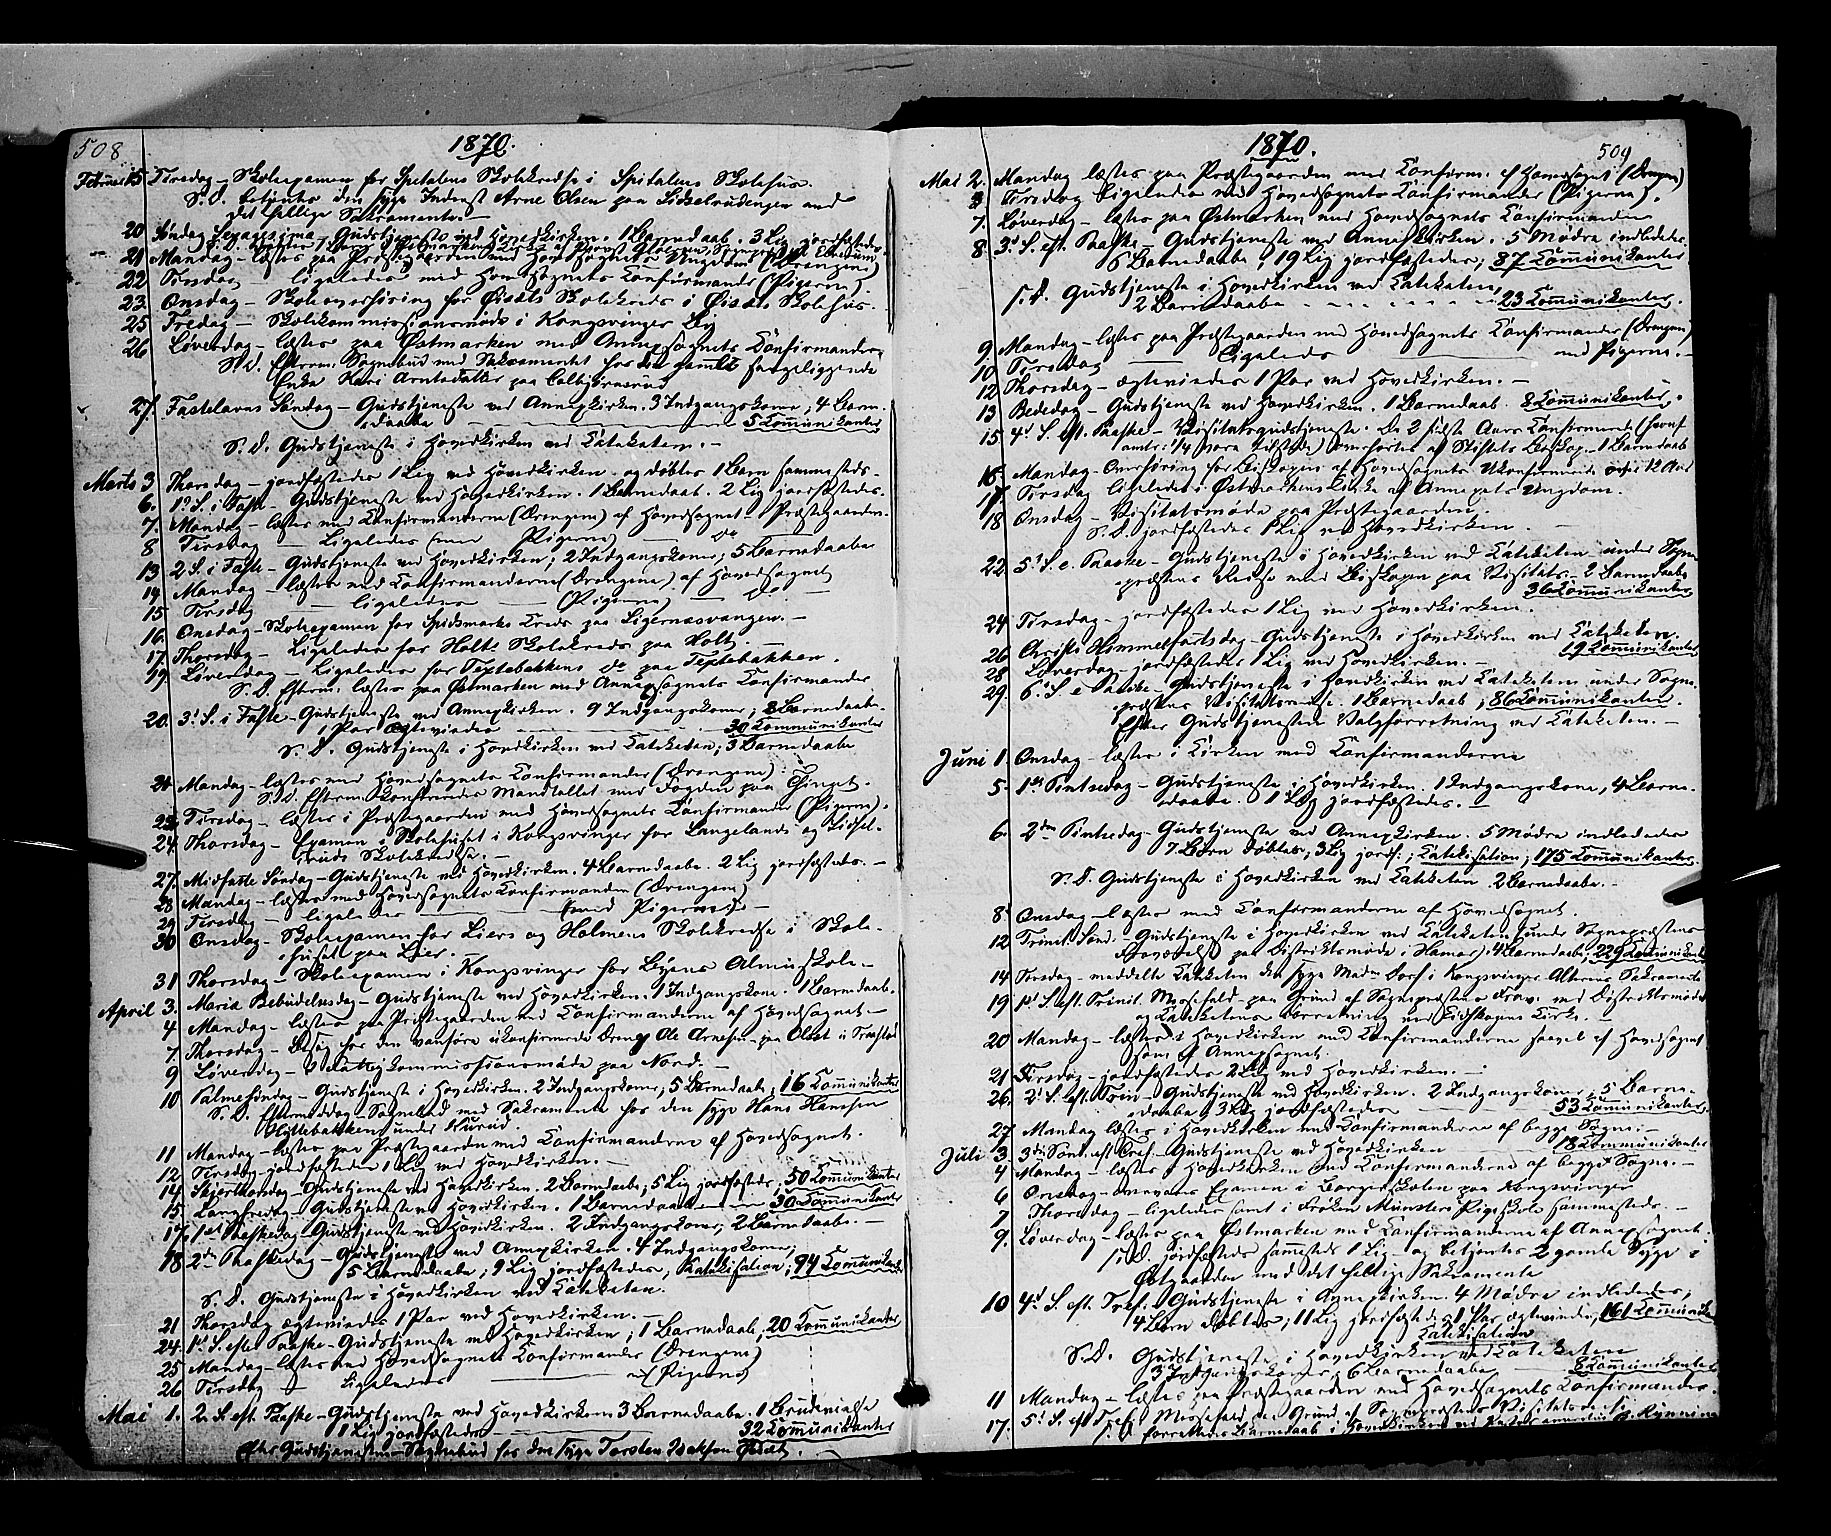 508
1870.
Februar 15 Tirsdag – Skoleexamen for Spitalens Skolekreds i Spitalens Skolehus.
S. D. betjentes den syge Inderst Arne Olsen paa Sidselrudengen med
det hellige Sakramente. –
20 Søndag Sexagesima – Gudstjeneste ved Hovedkirken. 1 Barnedaab. 3 Lig jordfæstedes.
21 Mandag – læstes paa Præstegaarden med Confirmander (Drengene)
22 Tirsdag – ligeledes med Hovedsognets Confirmander (Pigerne).
23. Onsdag – Skoleoverhøring for Øiset Skolekreds i Øisets Skolehus.
25 Fredag – Skolekommissionsmøde i Kongsvinger By
26 Løverdag – læstes paa Østmarken med Annexsognets Confirmander
S. D. Efterm. Sognebud med Sakramentet hos den gamle sengeliggende
Enke Kari Arntsdatter paa
27. Fastelavns Søndag – Gudstjeneste ved Annexkirken. 3 Indgangskoner, 4 Barne-
daabe 5 Communikanter
S. D. Gudstjeneste i Hovedkirken ved Catecheten. –
Marts 3 Thorsdag – jordfæstedes 1 Lig ved Hovedkirken og døbtes 1 Barn sammesteds –
6. 1ste S. i Faste – Gudstjeneste ved Hovedkirken. 1 Barnedaab. 2 Lig jordfæstedes.
7. Mandag – læstes med Confirmanderne (Drengene) af Hovedsognet – Præstegaarden
8 Tirsdag – Ligeledes med (Pigerne) – Do
13 2 S. i Faste – Gudstjeneste ved Hovedkirken; 2 Indgangskoner; 5 Barnedaabe
14 Mandag – læstes med Confirmanderne (Drengene) af Hovedsognet
15 Tirsdag – ligeledes – (Pigerne) – Do –
16. Onsdag – Skoleexamen for Spidsmarks Kreds paa Ligernæsvangen. –
17. Thorsdag – Ligeledes for Holts Skolekreds paa Holt –
19. Løverdag – Ligeledes for Teptebakkens do paa Teptebakken.
S. D. Efterm. læstes paa Østmarken med Annexsognets Confirmander
20. 3d S. i Faste – Gudstjeneste ved Annexkirken. 9 Indgangskoner; 8 Barnedaabe
1 Par ægteviedes 30 Communikanter
S. D. Gudstjeneste i Hovedkirken ved Catecheten; 3 Barnedaabe
21 Mandag – læstes med Hovedsognets Confirmander (Drengene).
S. D. Efterm. Konfereredes Mandtallet med Fogden paa Tinget.
22. Tirsdag – læstes i Præstegaarden med Hovedsognets Confirmander (Pigerne).
24. Thorsdag – Examen i Skolehuset i Kongsvinger for Langelands og Sidsel-
ruds Skolekredse. –
27. Midfaste Søndag – Gudstjeneste ved Hovedkirken. 4 Barnedaabe. 2 Lig jordfæstedes. –
28 Mandag – læstes med Hovedsognets Confirmander (Drengene)
29 Tirsdag – ligeledes – (med Pigerne) –
30 Onsdag – Skoleexamen for Liers og Holmens Skolekredse i Skole-
huset paa Lier. –
31 Thorsdag – Skoleexamen i Kongsvinger for Byens Almueskole. –
April 3. Mariæ Bebudelsesdag – Gudstjeneste ved Hovedkirken. 1 Indgangskone. 1 Barnedaab.
4 Mandag – læstes paa Præstegaarden med Confirmanderne af Hovedsognet –
7. Thorsdag – Besøg hos den vanføre ukonfirmerede Dreng Ole Arnesen paa
9 Løverdag – Fattigkommissionsmøde paa Nord. –
10 Palmesøndag – Gudstjeneste i Hovedkirken. 2 Indgangskoner; 5 Barnedaabe; 16 Communikanter
S. D. Eftermiddag Sognebud med Sakramente hos den syge Hans Hansen
under Kurud.
11 Mandag – læstes paa Præstegaarden med Confirmanderne af Hovedsognet.
12 Tirsdag – jordfæstedes 1 Lig ved Hovedkirken. –
14 Skjærthorsdag – Gudstjeneste ved Hovedkirken. 2 Barnedaabe; 5 Lig jordfæstede; 50 Communikanter
15 Langfredag – Gudstjeneste Hovedkirken. 1 Barnedaab 30 Communikanter
17. 1ste Paaskedag – Gudstjeneste ved Hovedkirken. 2 Indgangskoner; 2 Barnedaabe. –
18 2den Paaskedag – Gudstjeneste ved Annexkirken. 4 Indgangskoner;
5 Barnedaabe; 9 Lig jordfæstedes; Katekisation; 94 Communikanter
S. D. Gudstjeneste i Hovedkirken ved Catecheten.
21 Thorsdag ægteviedes 1 Par ved Hovedkirken. –
24. 1st S. efter Paaske – Gudstjeneste ved Hovedkirken; 1 Barnedaab; 20 Communikanter
25 Mandag – læstes med Hovedsognets Confirmander (Drengene)
26 Tirsdag – ligeledes – (Pigerne)
Mai 1. 2. S. eft. Paaske – Gudstjeneste ved Hovedkirken. 3 Barnedaabe. 1 Brudevielse
1 Lig jordfæstedes 32 Communikanter
Efter Gudstjenesten – Sognebud hos den syge Torsten Isaksen
1870.
509
Mai 2. Mandag læstes paa Præstegaarden med Confirm. af Hovedsognet (Drengene)
3 Tirsdag ligeledes med Hovedsognets Confirmander (Pigerne).
7. Løverdag – læstes paa Østmarken med Hovedsognets Confirmander
8. 3d S. eft. Paaske – Gudstjeneste ved Annexkirken. 5 Mødre indlededes,
6 Barnedaabe, 19 Lig jordfæstedes; 87 Communikanter
S. D. Gudstjeneste i Hovedkirken ved Catecheten,
2 Barnedaabe 23 Communikanter.
9. Mandag – læstes paa Præstegaarden med Hovedsognets Confirmander (Drengene)
10 Tirsdag ligeledes – med Pigerne. –
12 Thorsdag – ægteviedes 1 Par ved Hovedkirken. –
13 Bededag – Gudstjeneste ved Hovedkirken. 1 Barnedaab. 8 Communikanter.
15 4d S. eft. Paaske – Visitatsgudstjeneste. De 2 sidste Aars Confirmander
overhørtes af Stiftets Biskop – 1 Barnedaab
16 Mandag – Overhøring for Biskopen af Hovedsognets Ukonfirmerede over 12 Aar
17 Tirsdag ligeledes i Østmarkens Kirke af Annexets Ungdom.
18 Onsdag – Visitatsmøde paa Præstegaarden.
S. D. jordfæstedes 1 Lig ved Hovedkirken. –
22 5d S. e. Paaske – Gudstjeneste i Hovedkirken ved Catecheten under Sogne-
præstens Reise med Biskopen paa Visitats – 2 Barnedaabe
36 Communikanter
24 Tirsdag – jordfæstedes 1 Lig ved Hovedkirken.
26 Christi Himmelfartsdag – Gudstjeneste i Hovedkirken ved Catecheten.
19 Communikanter
28 Løverdag – jordfæstedes 1 Lig ved Hovedkirken. –
29. 6d S. e Paaske – Gudstjeneste i Hovedkirken ved Catecheten under Sogne-
præstens Visitatsreise. 1 Barnedaab; 86 Communikanter.
Efter Gudstjenesten Valgforretning ved Catecheten. –
Juni 1. Onsdag – læstes i Kirken med Confirmanderne
5. 1ste Pintsedag – Gudstjeneste i Hovedkirken. 1 Indgangskone, 4 Barne-
daabe. 1 Lig jordfæstedes. –
6. 2den Pintsedag – Gudstjeneste ved Annexkirken. 5 Mødre indlededes
7 Børn døbtes; 3 Lig jordf.; Catekisation; 175 Communikanter.
S. D. Gudstjeneste i Hovedkirken ved Catecheten. 2 Barnedaabe. –
8. Onsdag – læstes med Confirmanderne af Hovedsognet.
12 Trinit. Sønd. – Gudstjeneste i Hovedkirken ved Catecheten (under Sognepræstens
Fravær paa Distriktsmøde i Hamar). 4 Barnedaabe; 229 Communikanter
14 Tirsdag – meddelte Catecheten den syge Madm Dorf i Kongsvinger Alterens Sakramente
19 1st S. eft. Trinit. Messefald – paa Grund af Sognepræstens Fravær ved Distriktsmødet
og Catechetens Forretning ved Eidskogens Kirke. –
20 Mandag – læstes i Hovedkirken med Confirmanderne saavel af Hovedsognet
som af Annexsognet.
21 Tirsdag – jordfæstedes 2 Lig ved Hovedkirken. –
26. 2d S. eft. Trin – Gudstjeneste ved Hovedkirken. 2 Indgangskoner, 5 Barne-
daabe 3 Lig jordfæstedes 53 Communikanter.
27 Mandag læstes i Hovedkirken med Confirmanderne af begge Sogne. –
Juli 3 3die Sønd. eft Tref. – Gudstjeneste ved Hovedkirken 18 Communikanter
4 Mandag – læstes i Hovedkirken med Confirmanderne af begge Sogne. –
6 Onsdag – overvares Examen i Borgerskolen paa Kongsvinger
7 Thorsdag – ligeledes samt i Frøken Münsters Pigeskole sammesteds. –
9. Løverdag – læstes paa Østmarken med Confirmanderne af Annexsognet.
S. D. jordfæstedes sammesteds 1 Lig – og betjentes 2 gamle Syge i
Østgaarden med det hellige Sakramente
10 4d S. eft. Tref. Gudstjeneste i Annexkirken. 4 Mødre indlededes,
4 Børn døbtes, 11 Lig jordfæstedes, 1 Par ægteviedes, 161 Communik.
Catekisation
S. D. Gudstjeneste i Hovedkirken ved Catecheten
3 Indgangskoner, 6 Barnedaabe 8 Communikanter
11 Mandag – læstes paa Præstegaarden med Hovedsognets Confirmander.
17. 5d S. eft Tref. Messefald paa Grund af Sognepræstens Visitatsreise
S. D. forrettedes Barnedaab i Hovedkirken ved